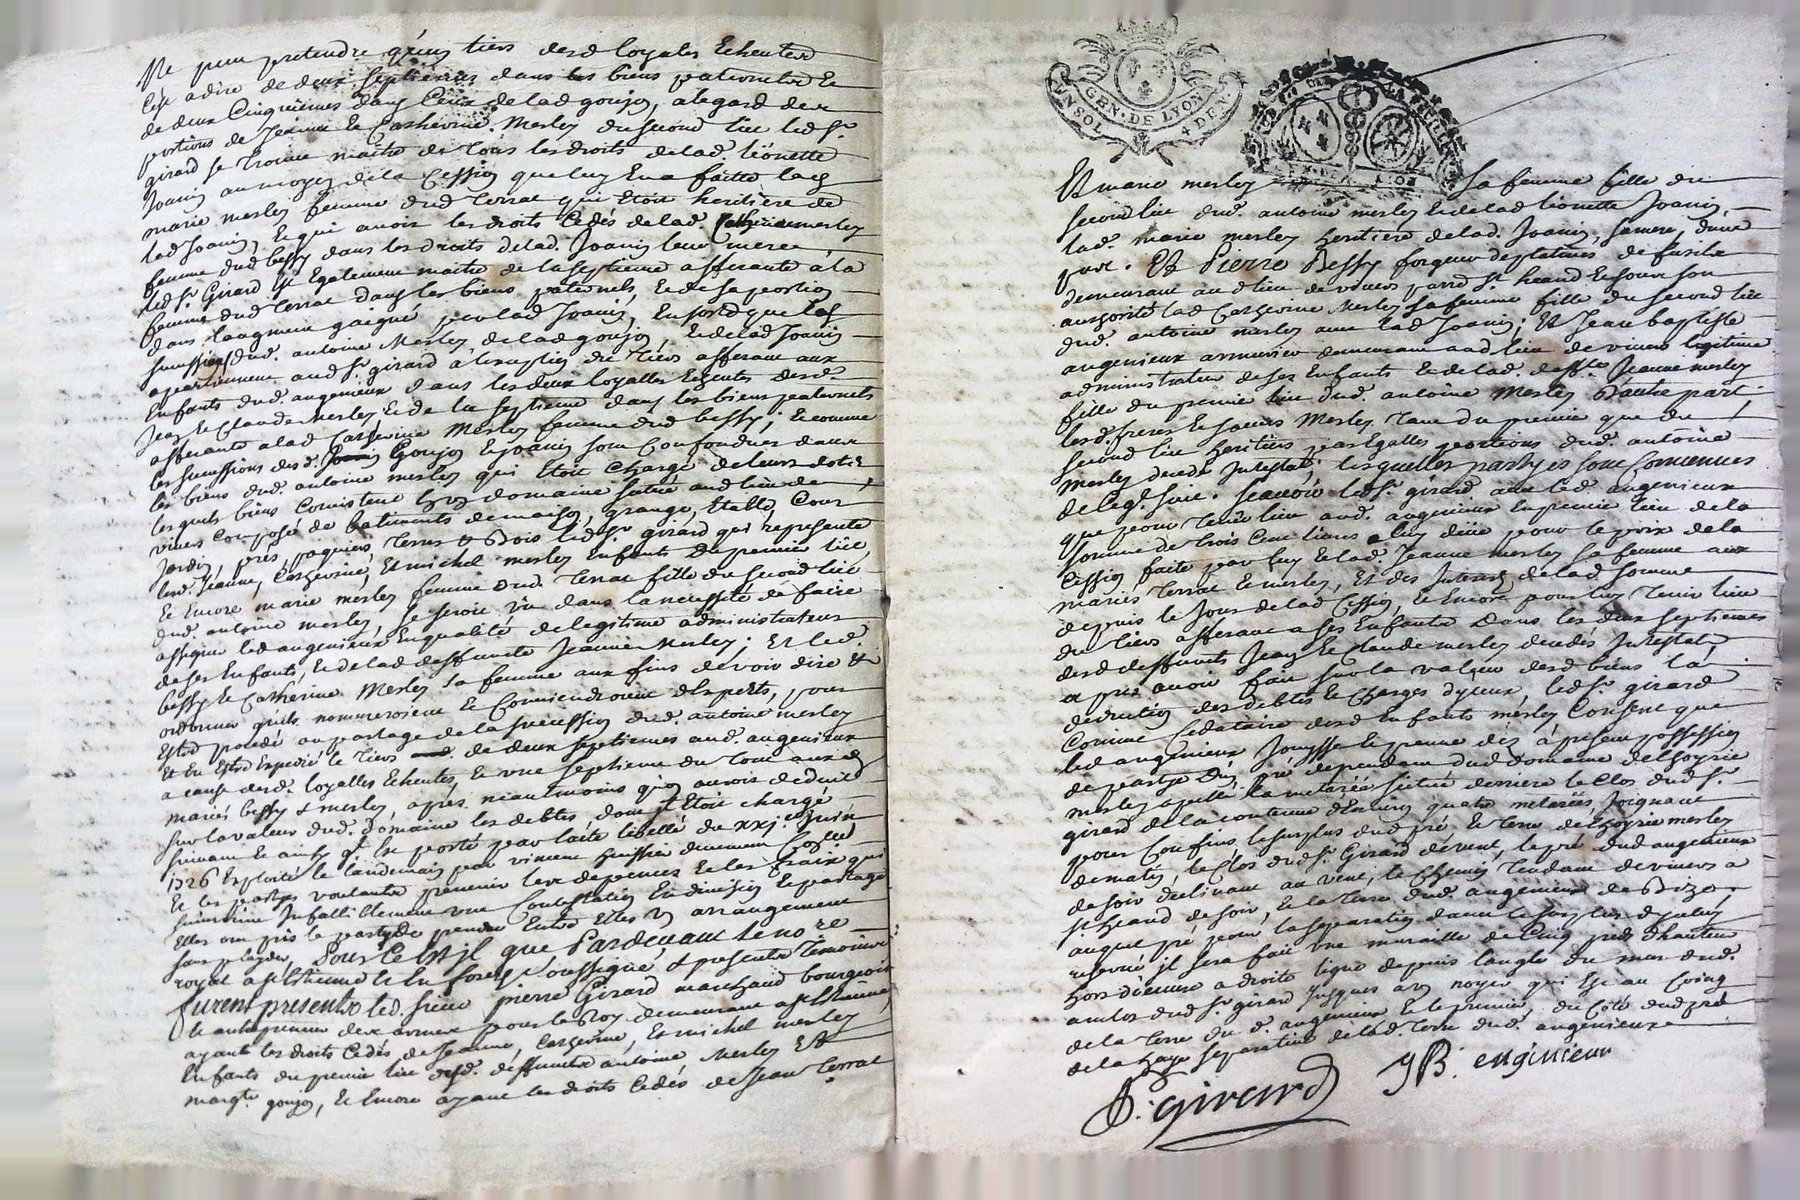 Ne peu pretendre qu'un tiers desd loyales Echeutes
C'est a dire de deux septiemes dans les biens paternels Et
de deux Cinquiemes dans Ceux de lad goujon, a legard des
portions de Jeanne Et Catherine Merley du second lict led sr.
girard se trouve maitre de tous les droits de lad Lionette
Joanin au moyen de la Cession que luy En a faitte lad
marie merley femme dud Terrat qui Etoit heritiere de
lad Joanin, Et qui avoit les droits Cedés de lad. Catherine merley
femme dud bessy dans les droits de lad. Joanin leur mere,
led sr. Girard Est Egalement maitre de la septieme afferante a la
femme dud Terrat dans les biens paternels, Et de sa portion
dans laugment gaigné par lad Joanin, En sorte que les
successions dud. antoine Merley de lad goujon, Et de lad Joanin
apartiennent aud sr. girard à lexception du tiers afferant aux
Enfants dud. augenieux dans les deux loyalles Echeutes desd.
Jean Et Claude Merley Et de la septieme dans les biens paternels
afferante a lad Catherine Merley femme dud bessy; Et comme
les successions desd. goujon Et Joanin sont Confondues dans
les biens dud. antoine merley qui Etoit Chargé de leurs dots
lesquels biens Consistent En un domaine situé aud lieu de
vivers Composé de batiments de maison, grange, Etable, Cour
Jardin, prés, paquiers, terres Et bois led sr. girard qui represente
lesd. Jeanne, Catherine, Et michel merley Enfants du premier lict,
Et Encore marie merley femme dud Terrat fille du second lict
dud. antoine merley, se seroit vu dans la necessité de faire
assigner led augenieux En qualité de legitime administrateur
de ses Enfants, Et de lad deffunte Jeanne Merley; Et led.
bessy Et Catherine Merley sa femme aux fins de voir dire Et
ordonner quils nommeroient Et Conviendroient d'Experts, pour
Estre procedé au partage de la succession dud. antoine merley
Et En Estre Expedié le tiers de deux septiemes aud. augenieux
a cause desd. loyalles Echeutes, Et une septieme du tout auxd
mariés bessy Et merley, apres neantmoins qu'on auroit deduit
sur la valeur dud. domaine les debtes dont il Etoit chargé
suivant Et ainsy qu'il est porté par lacte libellé du xxj. Juin
1726 Exploité le landemain par vincent huissier
Et les partyes voulantes prevenir les depences Et les fraix qui
suivroient Infailliblement une Contestation En division Et partage
Elles ont pris le party de prendre Entre Elles un arrangement
sans plaider, Pour Ce Est jl que Pardevant le nore
royal a st Estienne En forests soussigné Et presents temoins
furent presents led. sieur pierre Girard marchand bourgeois
Et antrepreneur des armes pour le Roy demeurant a st Estienne
ayant les droits Cedés de Jeanne, Catherine, Et michel merley
Enfants du premier lict desd. deffuncts antoine Merley Et
margte. goujon, Et Encore ayant les droits Cedés de Jean Terrat
GEN. DE LYON
UN SOL 4 DEN.
Et marie merley sa femme fille du
second lict dud. antoine merley Et de lad Lionette Joanin,
lad. marie merley heritiere de lad. Joanin, sa mere, d'une
part. Et Pierre Bessy forgeur de platines de fusils
demeurant aud lieu de vivers parre st heand Et sous son
authorité lad Catherine Merley sa femme fille du second lict
dud. antoine merley avec lad Joanin; Et Jean baptiste
augenieux armurier demeurant aud lieu de vivers legitime
administrateur de ses Enfants Et de lad. deffte. Jeanne merley
fille du premier lict dud. antoine Merley d'autre part
lesd. freres Et soeurs Merley tant du premier que du
second lict heritiers par Egalles portions dud. antoine
merley decedé Intestat; lesquelles partyes sont Convenues
de Ce que suit. scavoir led sr. girard avec led augenieux
que pour tenir lieu aud. augenieux En premier lieu de la
somme de trois Cent livres a luy düe pour le prix de la
Cession faite par luy Et lad. Jeanne merley sa femme aux
mariés Terrat Et merley, Et des Interests de lad somme
depuis le jour de lad Cession, Et Encore pour luy tenir lieu
du tiers afferant a ses Enfants dans les deux septiemes
desd deffuncts Jean Et Claude merley decedés Intestat,
apres avoir fait sur la valeur desd biens la
deduction des debtes Et charges d'yceux, led sr. girard
Comme Cedataire desd Enfants merley Consent que
led augenieux Jouysse Et prenne dès à present possession
de partye d'un pré dependant dud domaine de lhoyrie
merley apellé la metarée située derriere le Clos dud sr.
girard de la contenue d'Environ quatre metarées Joignant
pour Confins le surplus dud pré Et terre de lhoyrie merley
de matin, le Clos dud sr. Girard de vent, le pré dud augenieux
de soir declinant au vent, le chemin tendant de vivers a
st heand de soir, Et la terre dud. augenieux de bize,
auquel pré pour la separation d'avec le surplus d'iceluy
reservé il sera fait une muraille de Cinq pieds d'hauteur
hors d'ieuvre a droite ligne depuis langle du mur dud.
enclos dud sr. girard Jusques a un noyer qui Est au Coing
de la terre dud. augenieux Et le premier, du Coté dud pré
de la haye separative de lad. terre dud. augenieux
P. Girard JB. enginieur